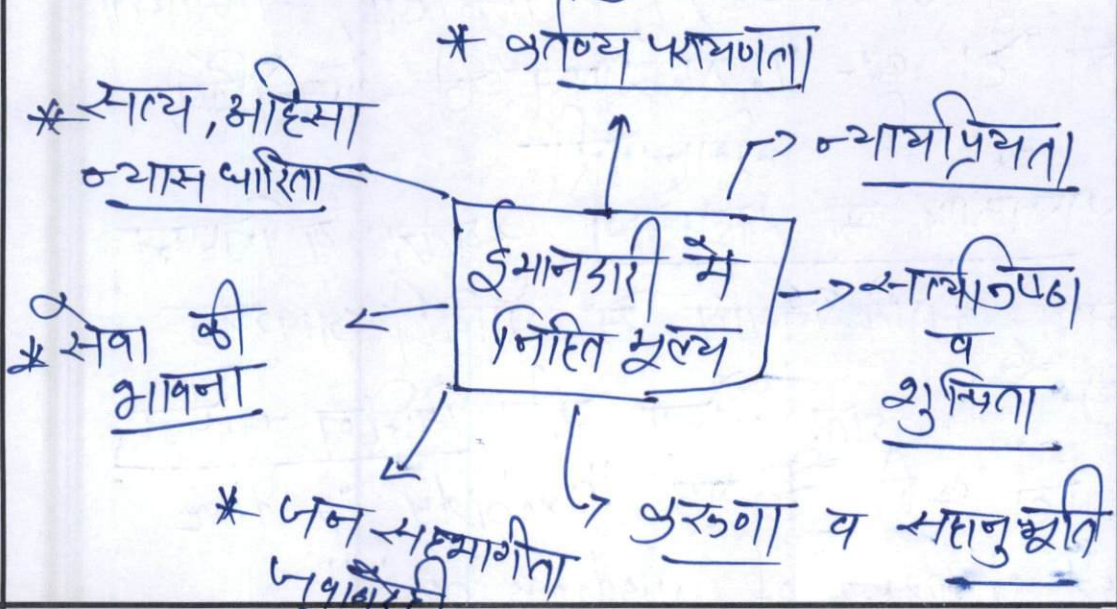 * कर्तव्य परायणता
* सत्य, अहिंसा
न्यास धारिता
न्यायप्रियता
ईमानदारी में
निहित मूल्य
सत्यनिष्ठा
व
शुचिता
* सेवा की
भावना
* जन सहभागीता
जवाबदेही
करुणा व सहानुभूति